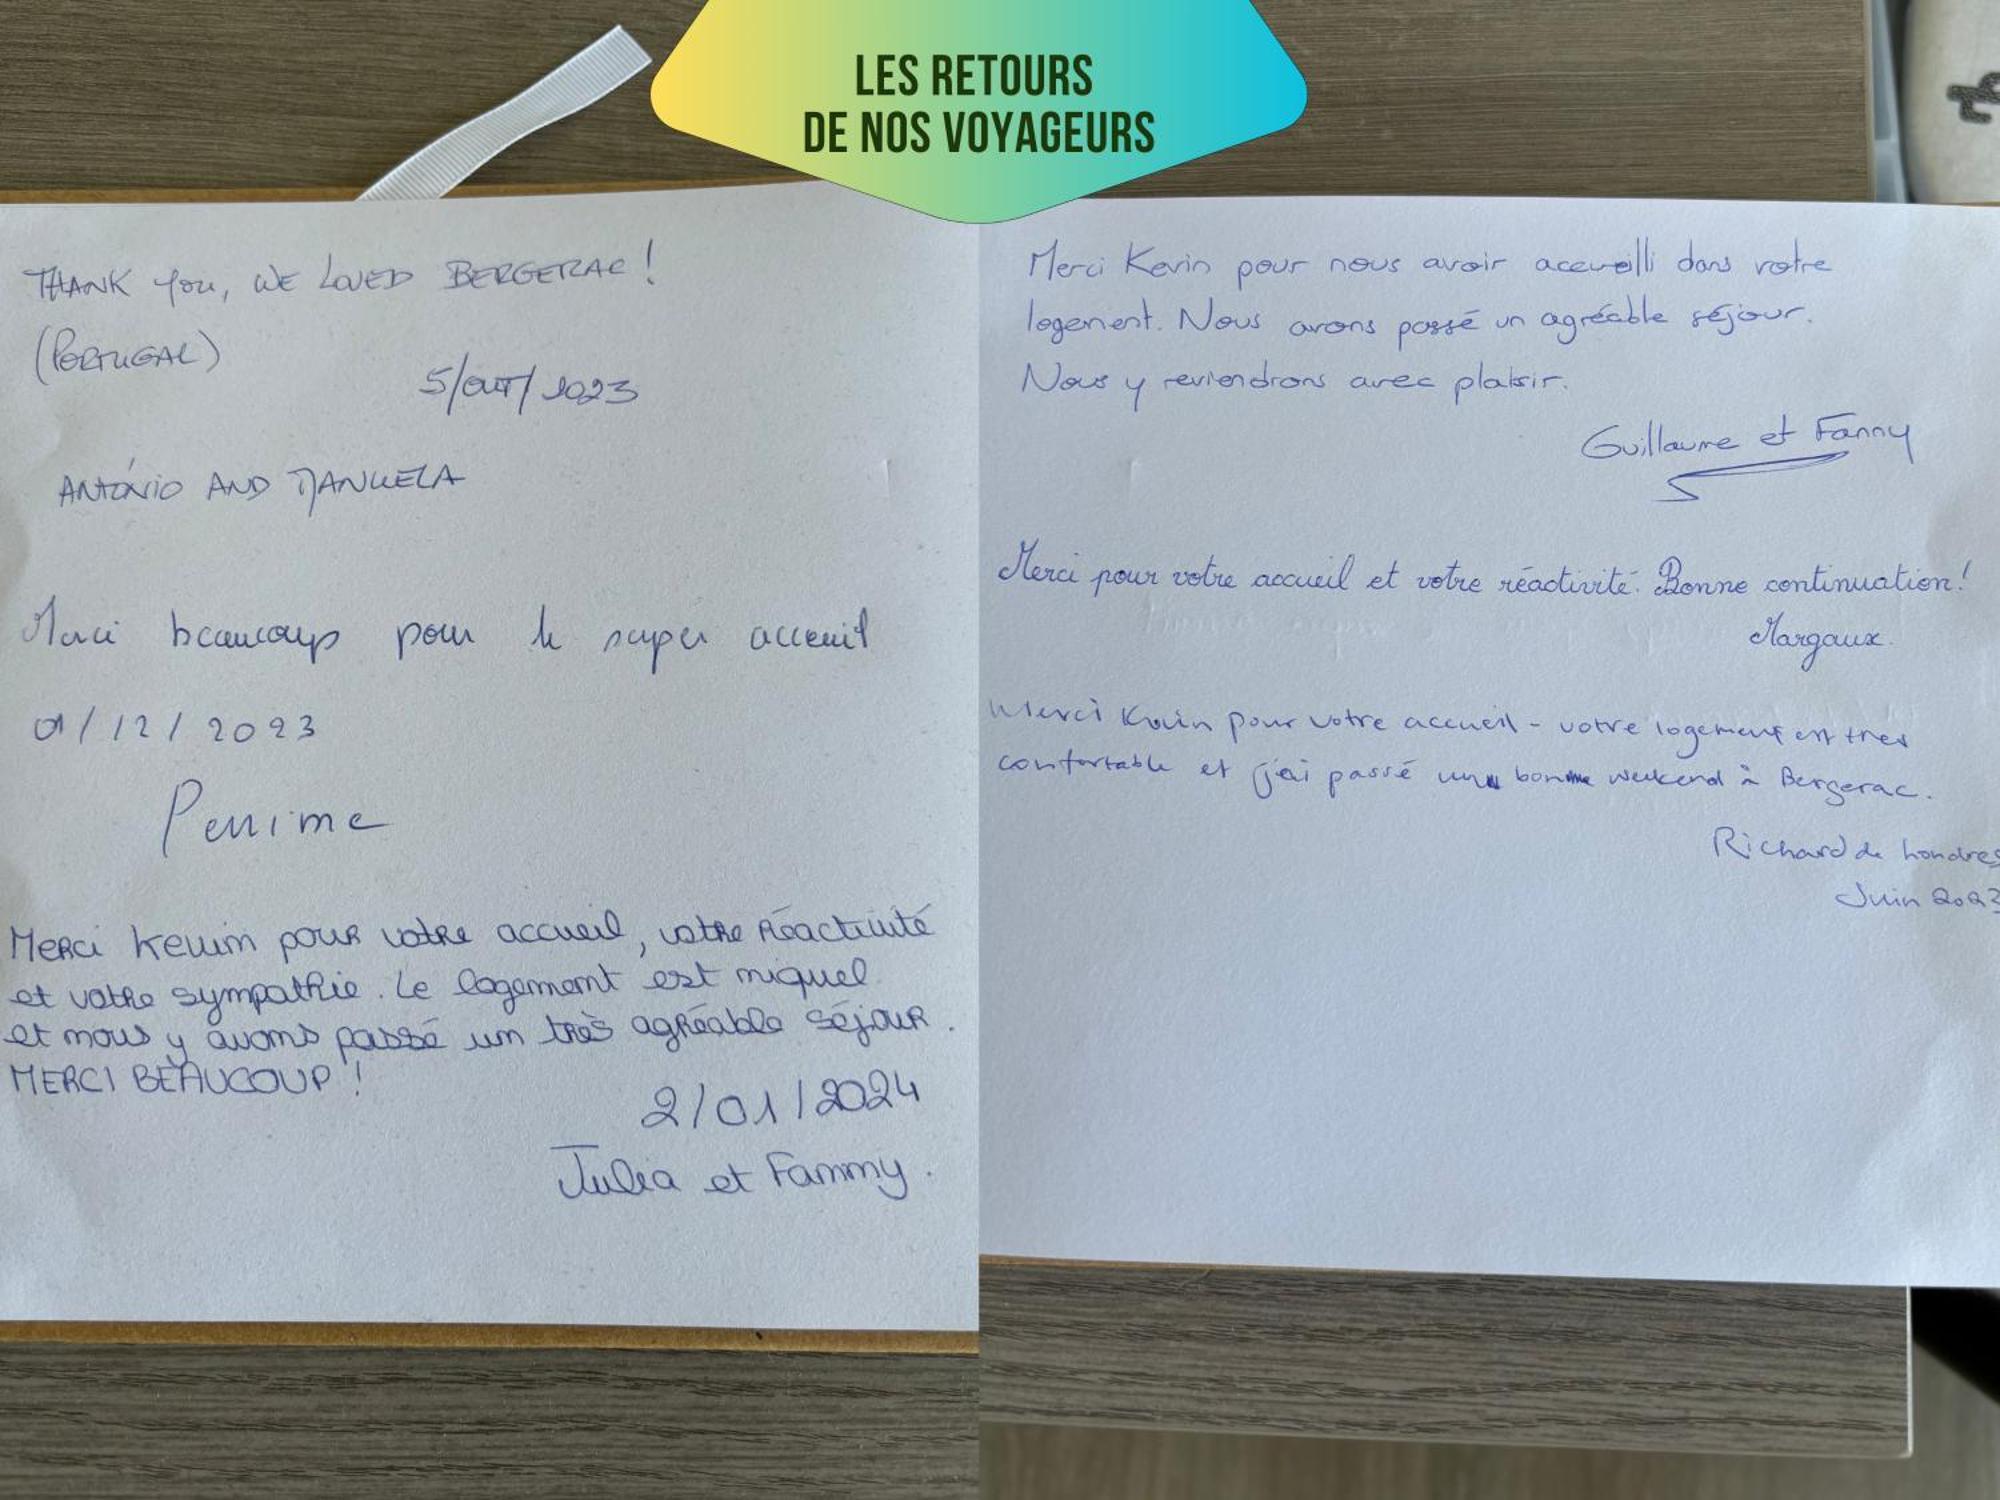 LES RETOURS
DE NOS VOYAGEURS
THANK YOU, WE LOVED BERGERAC!
(PORTUGAL)
5/OUT/2023
ANTÓNIO AND MANUELA
Merci beaucoup pour le super acceuil
01/12/2023
Perrine
MERCI Kevin pour votre accueil, votre réactivité
et votre sympathie. Le logement est niquel
et nous y avons passé un très agréable séjour.
MERCI BEAUCOUP !
2/01/2024
Julia et Fanny.
Merci Kevin pour nous avoir accueilli dans votre
logement. Nous avons passé un agréable séjour.
Nous y reviendrons avec plaisir.
Guillaume et Fanny
Merci pour votre accueil et votre réactivité. Bonne continuation!
Margaux.
Merci Kevin pour votre accueil - votre logement est tres
confortable et j'ai passé un bon weekend à Bergerac.
Richard de Londres
Juin 2023